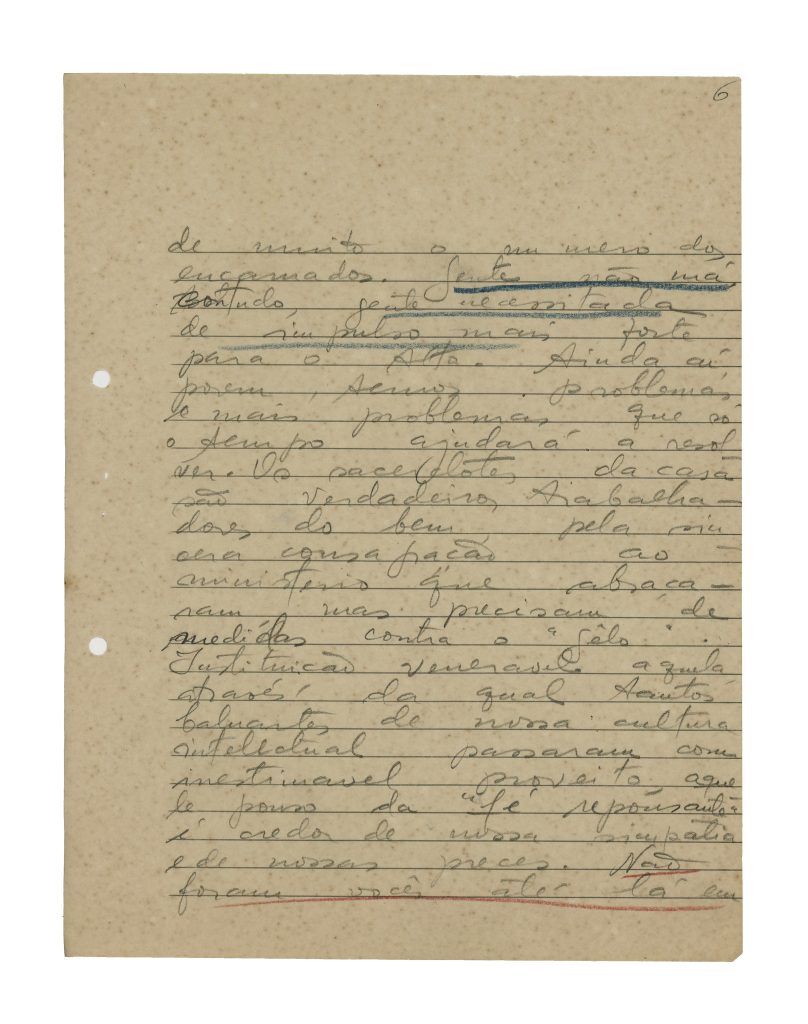 6
de muito o numero dos
encarnados. Gente não má
Contudo, gente necessitada
de impulso mais forte
para o Alto. Ainda aí
porem, temos problemas
e mais problemas que só
o tempo ajudará a resol
ver. Os sacerdotes da casa
são verdadeiros trabalha-
dores do bem, pela sin
cera consagração ao
ministerio que abraça-
ram mas precisam de
medidas contra o "gêlo".
Instituição veneravel aquela
através da qual tantos
baluartes de nossa cultura
intelectual passaram com
inestimavel proveito aque
le pouso da "fé repousante"
é credor de nossa simpatia
e de nossas preces. Não
foram vocês até lá em